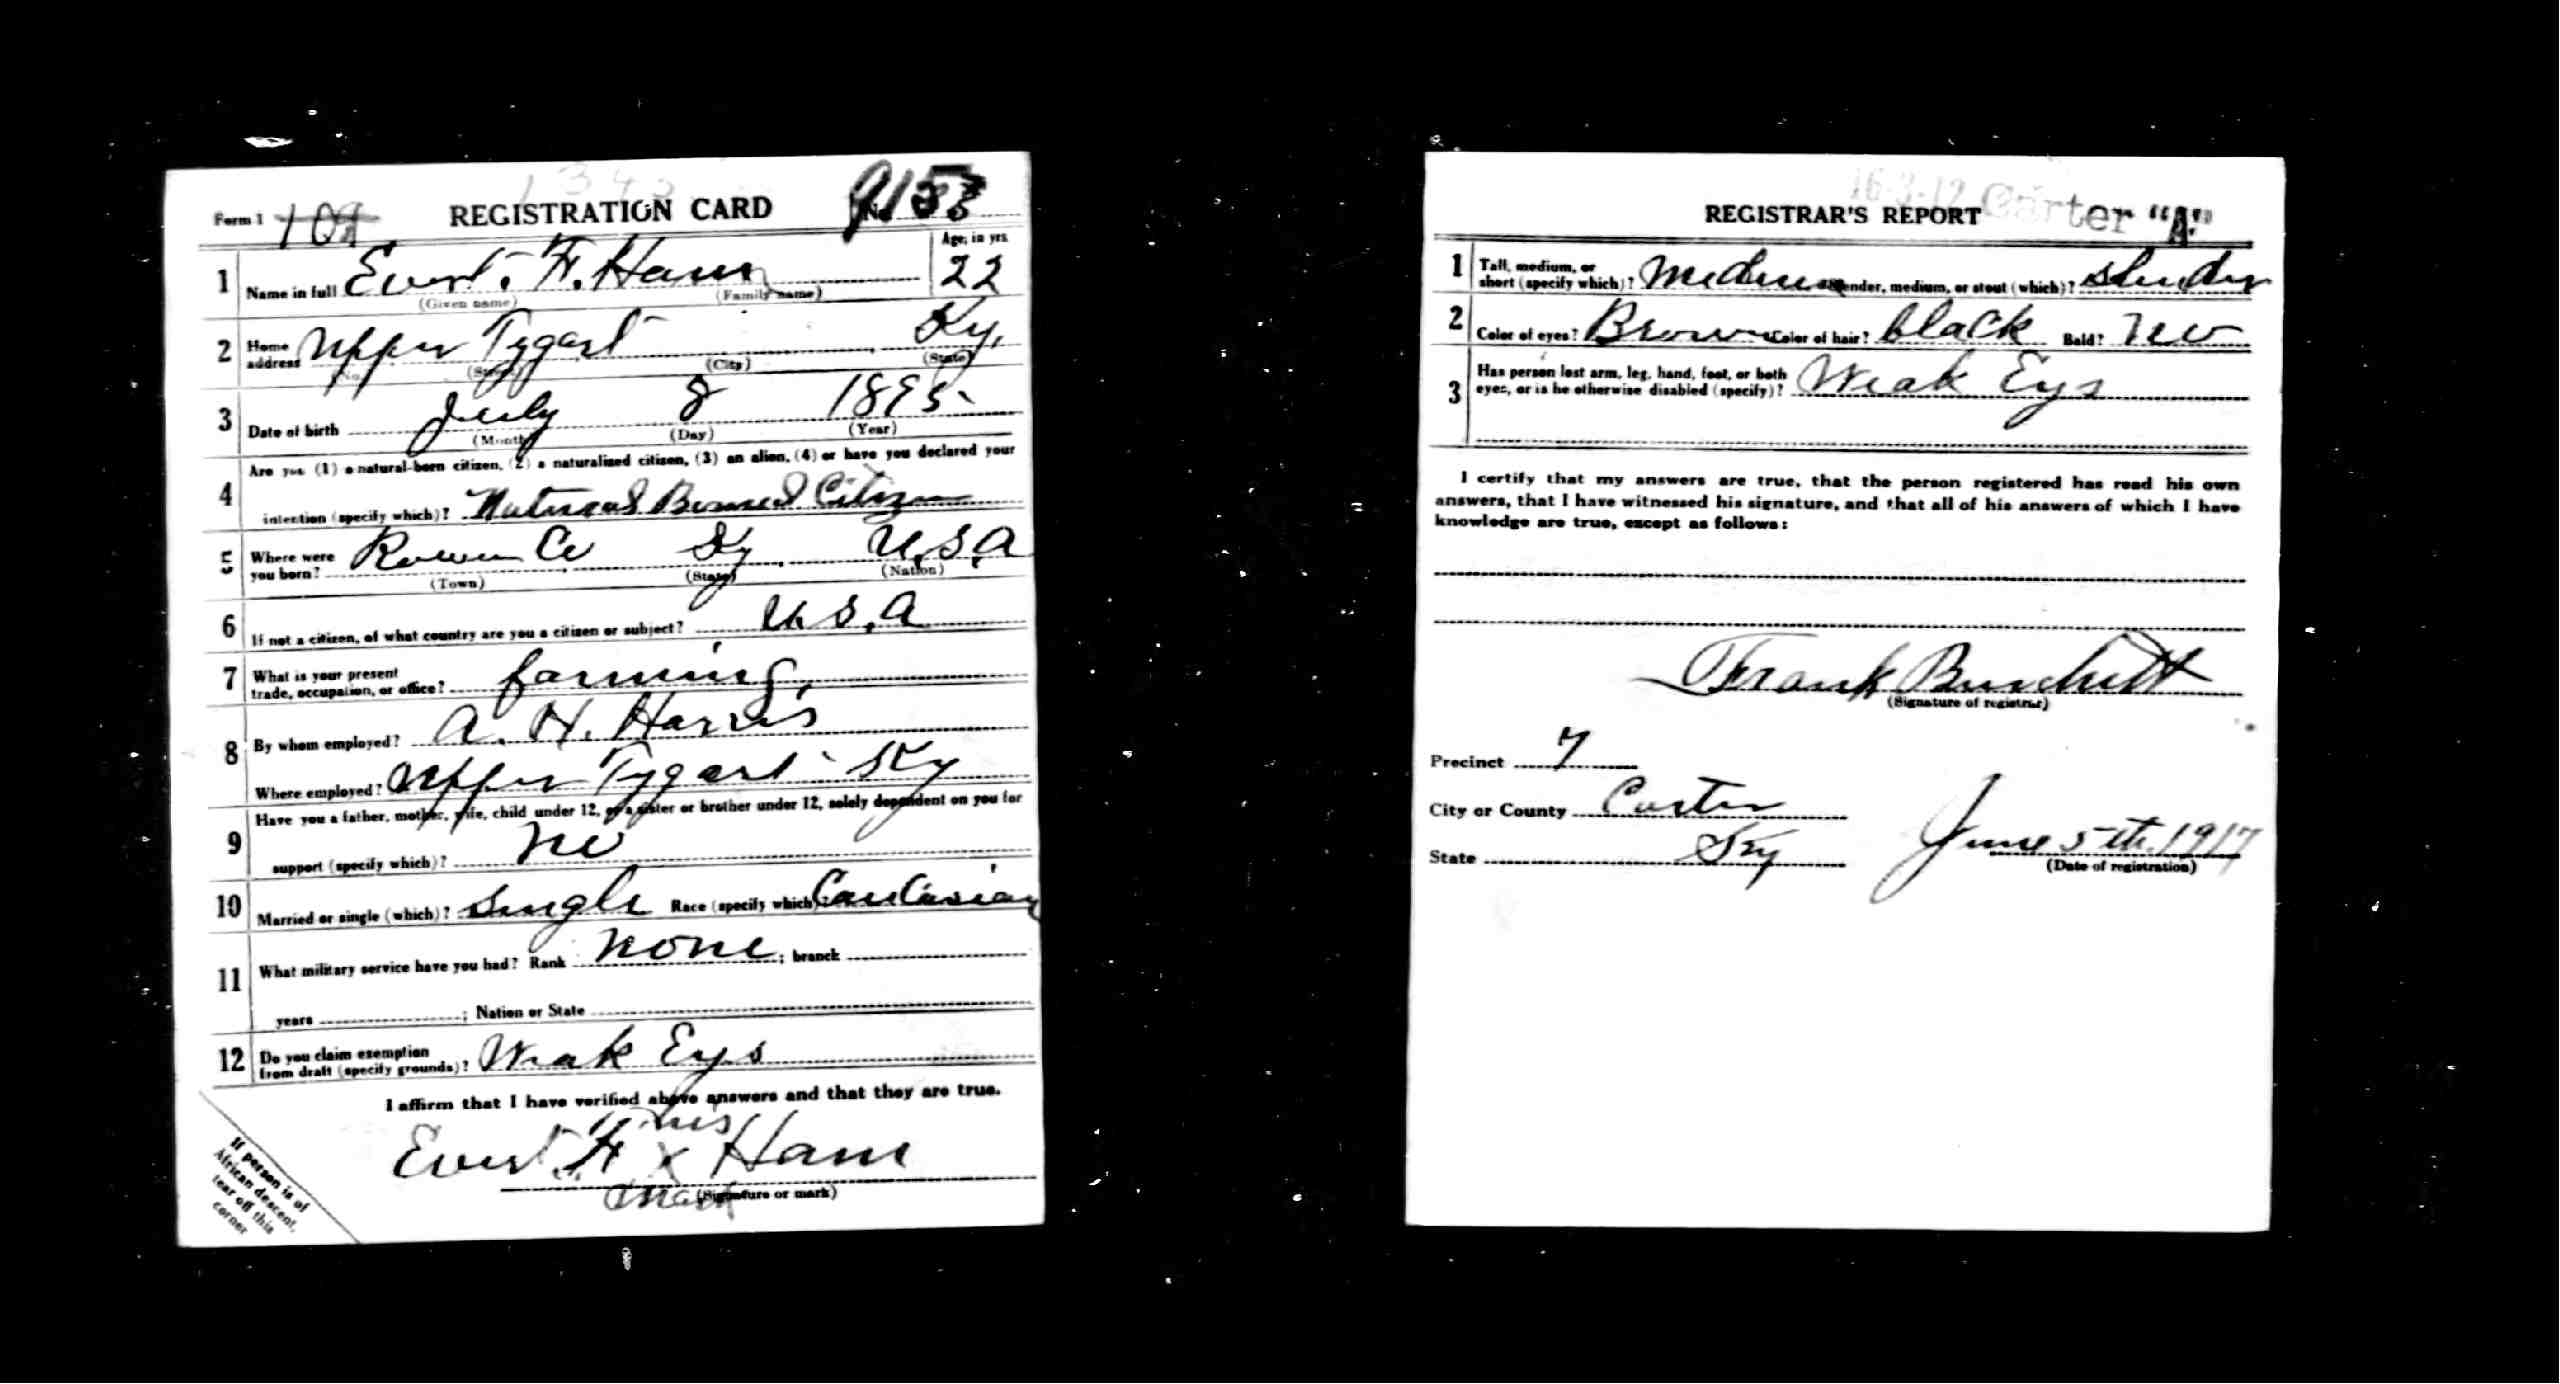 Form 1
REGISTRATION CARD
No. 153
Age, in yrs.
1 Name in full Evert. H. Ham 22
(Given name) (Family name)
2 Home address Upper Tygart Ky.
(No.) (Street) (City) (State)
3 Date of birth July 8 1895
(Month) (Day) (Year)
Are you (1) a natural-born citizen, (2) a naturalized citizen, (3) an alien, (4) or have you declared your
4 intention (specify which)? Natural Borned Citizen
5 Where were you born? Rowan Co Ky U.S.A
(Town) (State) (Nation)
6 If not a citizen, of what country are you a citizen or subject? U.S.A
7 What is your present trade, occupation, or office? farming
8 By whom employed? A. H. Harris
Where employed? Upper Tygart Ky
Have you a father, mother, wife, child under 12, or a sister or brother under 12, solely dependent on you for
9 support (specify which)? no
10 Married or single (which)? single Race (specify which)? Caucasian
11 What military service have you had? Rank none ; branch
years ; Nation or State
12 Do you claim exemption from draft (specify grounds)? Weak Eys
I affirm that I have verified above answers and that they are true.
his
Evert. H x Ham
mark
(Signature or mark)
If person is of
African descent,
tear off this
corner
Carter "A"
REGISTRAR'S REPORT
1 Tall, medium, or short (specify which)? Medium Slender, medium, or stout (which)? slender
2 Color of eyes? Brown Color of hair? black Bald? no
3 Has person lost arm, leg, hand, foot, or both eyes, or is he otherwise disabled (specify)? Weak Eys
I certify that my answers are true, that the person registered has read his own
answers, that I have witnessed his signature, and that all of his answers of which I have
knowledge are true, except as follows:
Frank Burchett
(Signature of registrar)
Precinct 7
City or County Carter
State Ky
June 5th. 1917
(Date of registration)